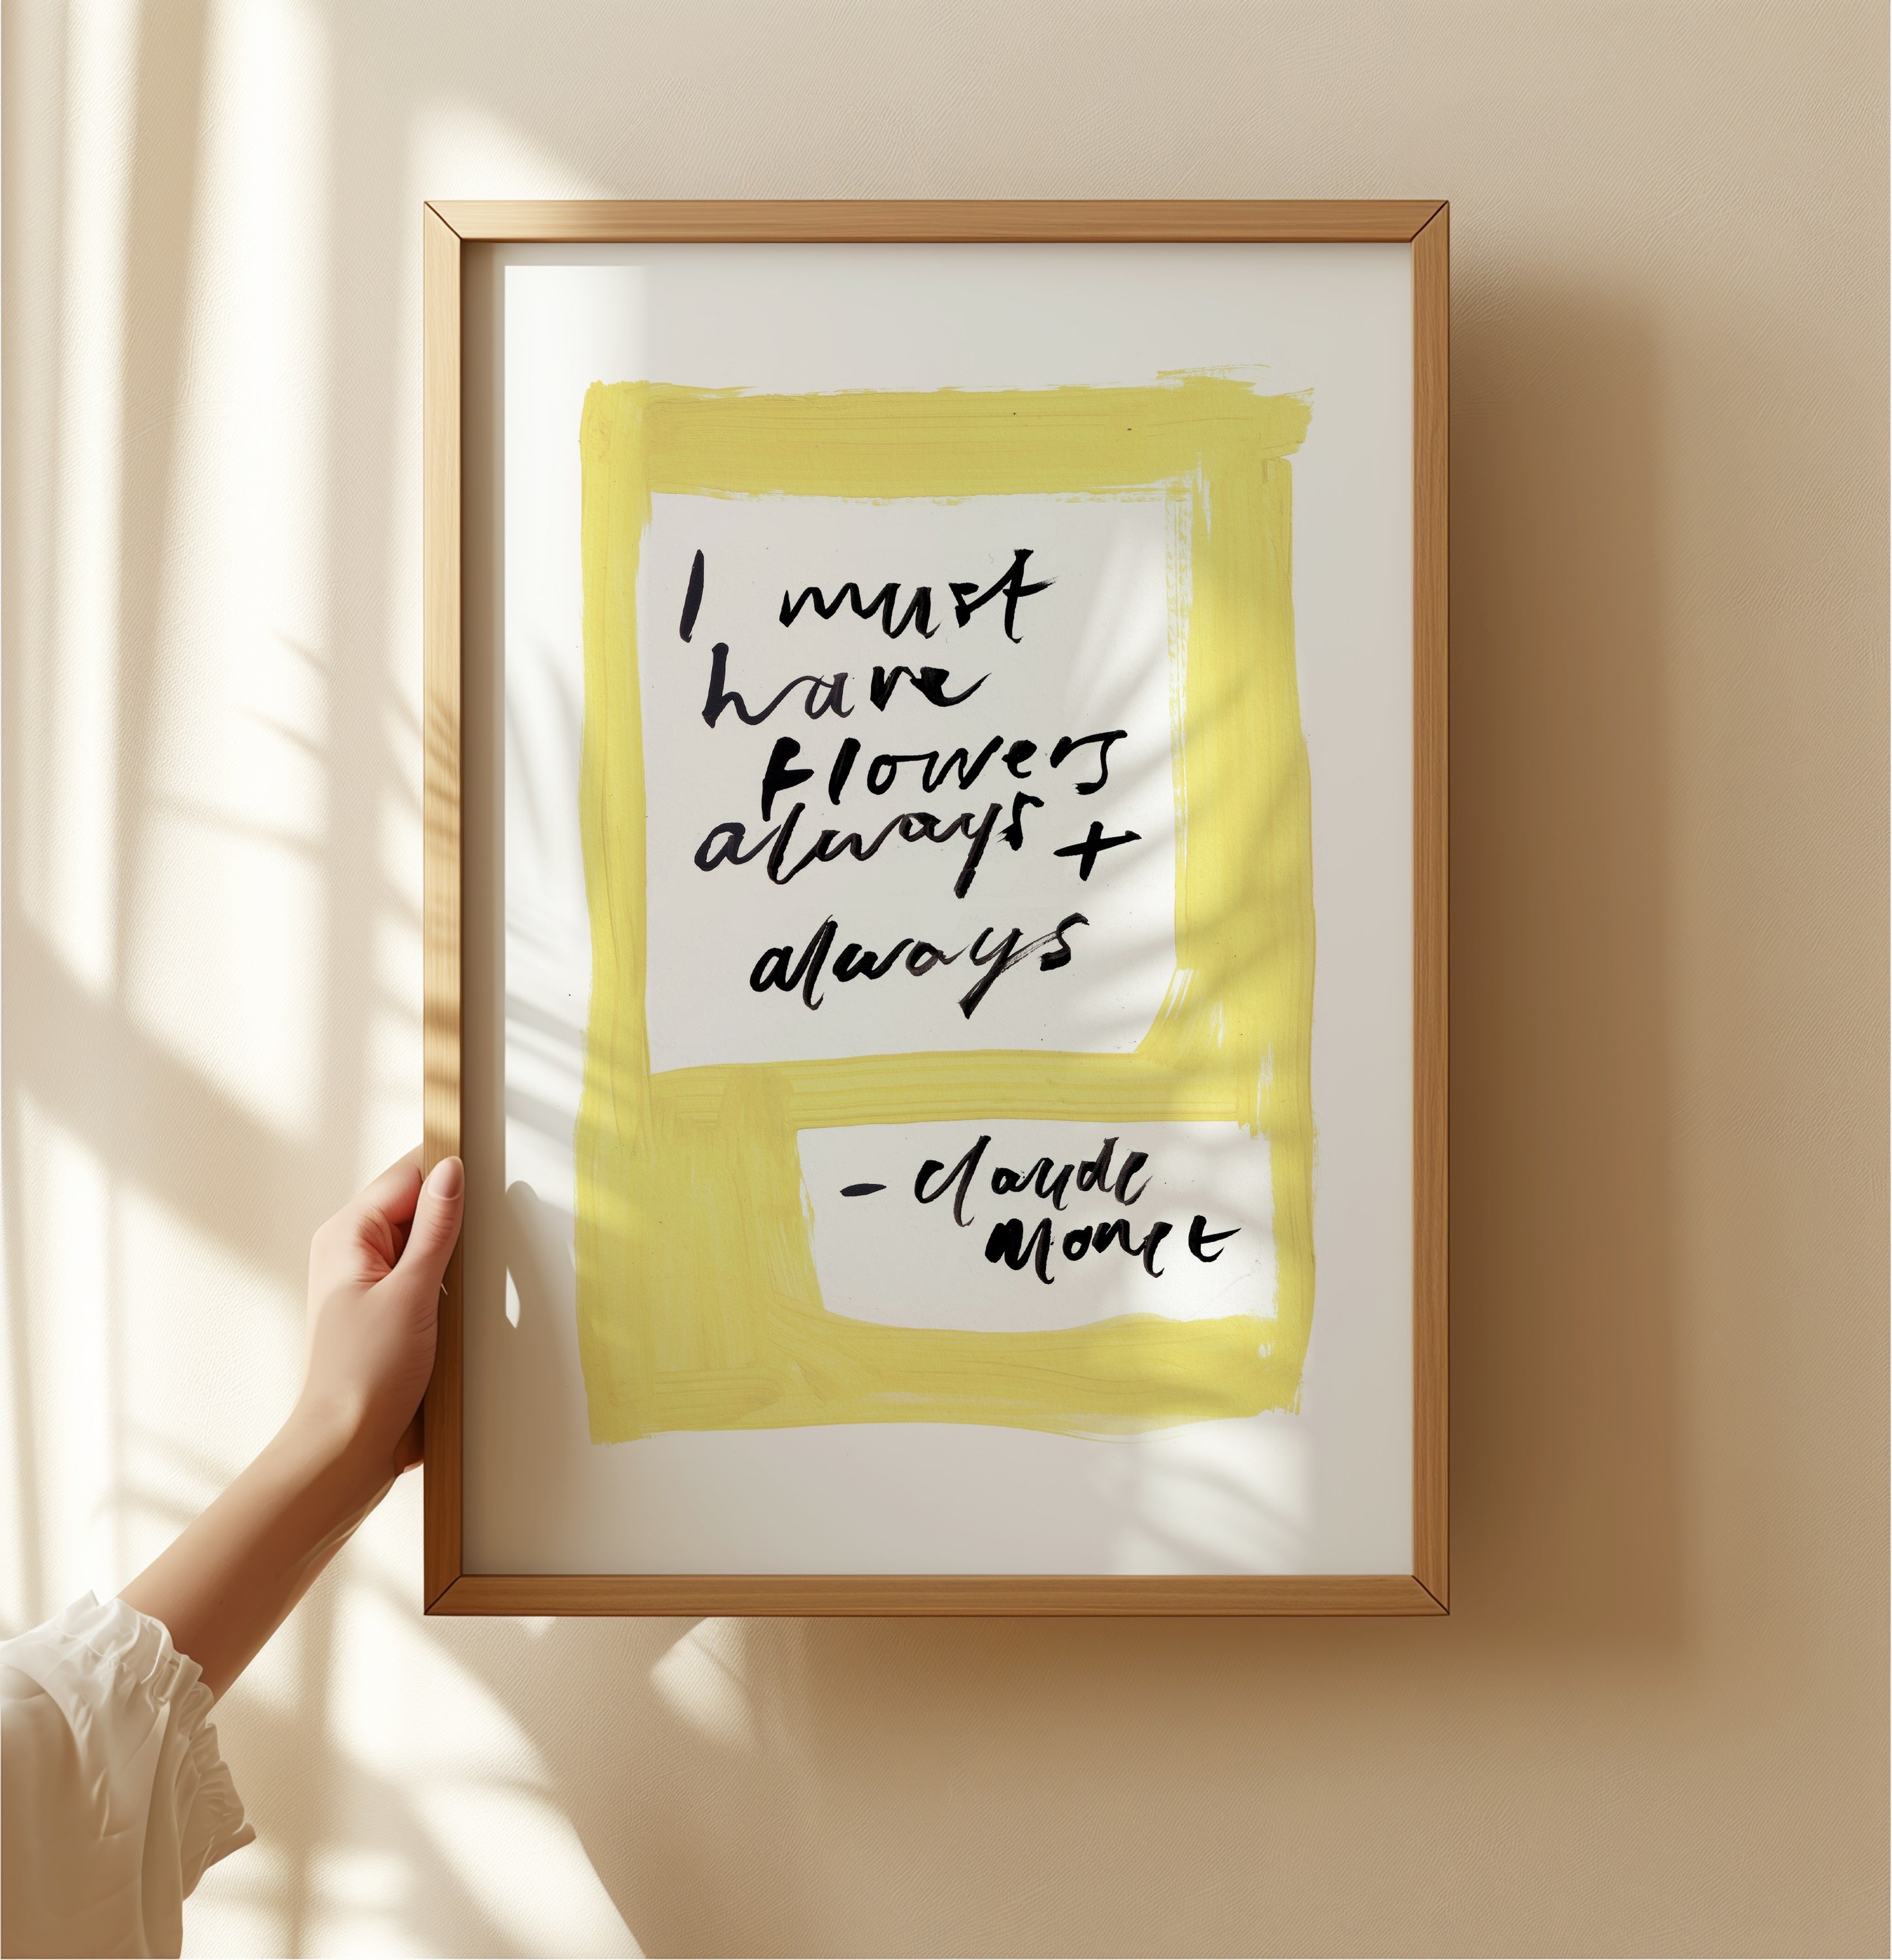 I must
have
flowers
always +
always
- Claude
Monet